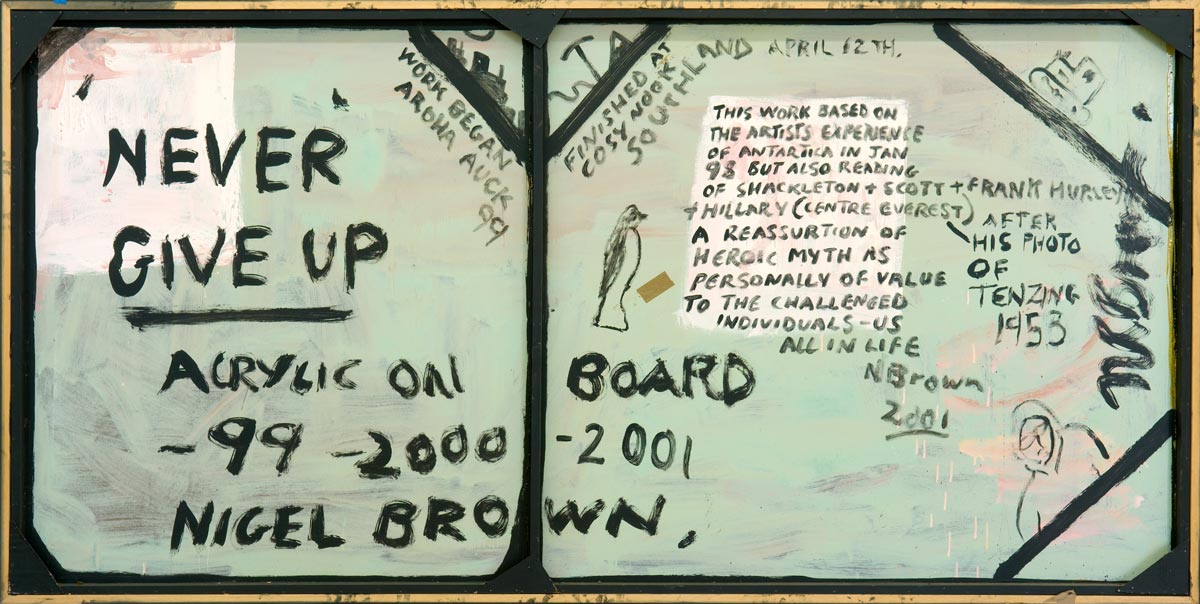 NEVER
GIVE UP
ACRYLIC ON BOARD
-99 -2000 -2001
NIGEL BROWN,
WORK BEGAN
AROHA AUCK 99
FINISHED AT
COSY NOOK
SOUTHLAND APRIL 12TH.
THIS WORK BASED ON
THE ARTISTS EXPERIENCE
OF ANTARTICA IN JAN
98 BUT ALSO READING
OF SHACKLETON + SCOTT + FRANK HURLEY
+ HILLARY (CENTRE EVEREST)
A REASSURTION OF
HEROIC MYTH AS
PERSONALLY OF VALUE
TO THE CHALLENGED
INDIVIDUALS-US
ALL IN LIFE
AFTER
HIS PHOTO
OF
TENZING
1953
NBrown
2001